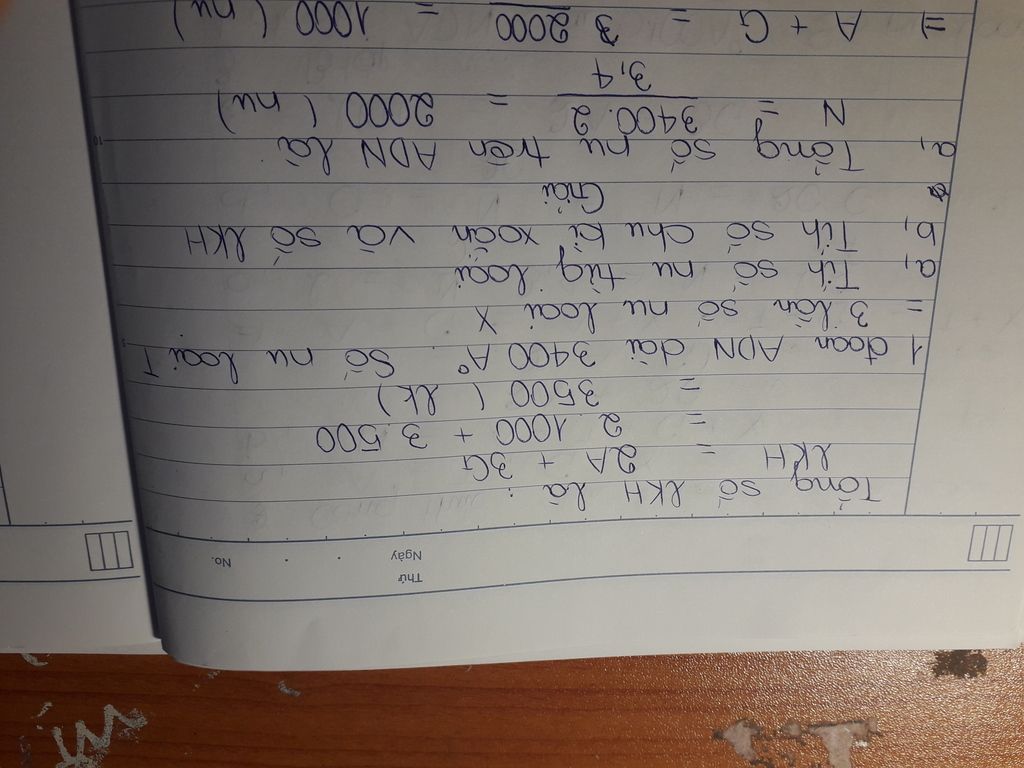 Thứ
Ngày
No.
Tổng số lkH là :
lkH = 2A + 3G
= 2.1000 + 3.500
= 3500 ( lk )
1 đoạn ADN dài 3400 A° . Số nu loại T
= 3 lần số nu loại X
a, Tíh số nu từg loại
b, Tíh số chu kì xoắn và số lkH
Giải
a, Tổng số nu trên ADN là
N = 3400.2 / 3,4 = 2000 ( nu )
=> A + G = 2000 / = 1000 ( nu )